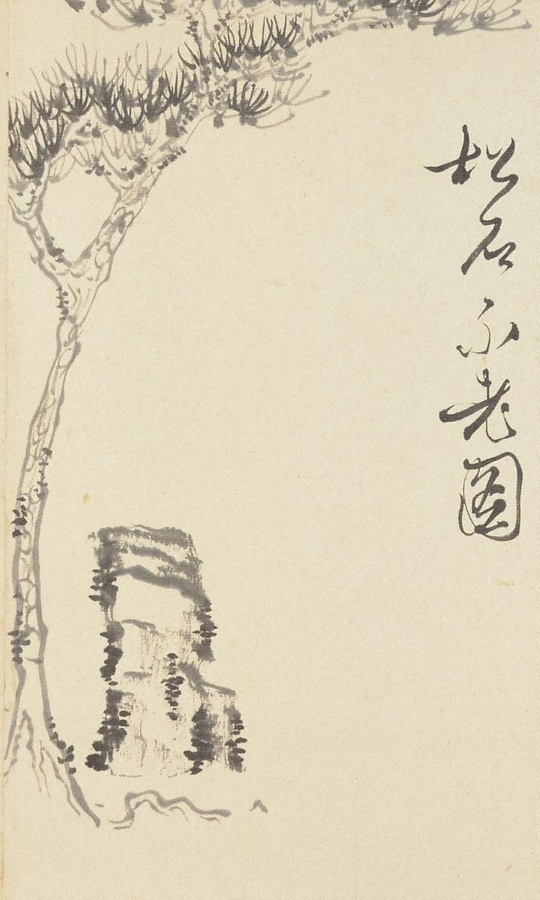 松石不老图